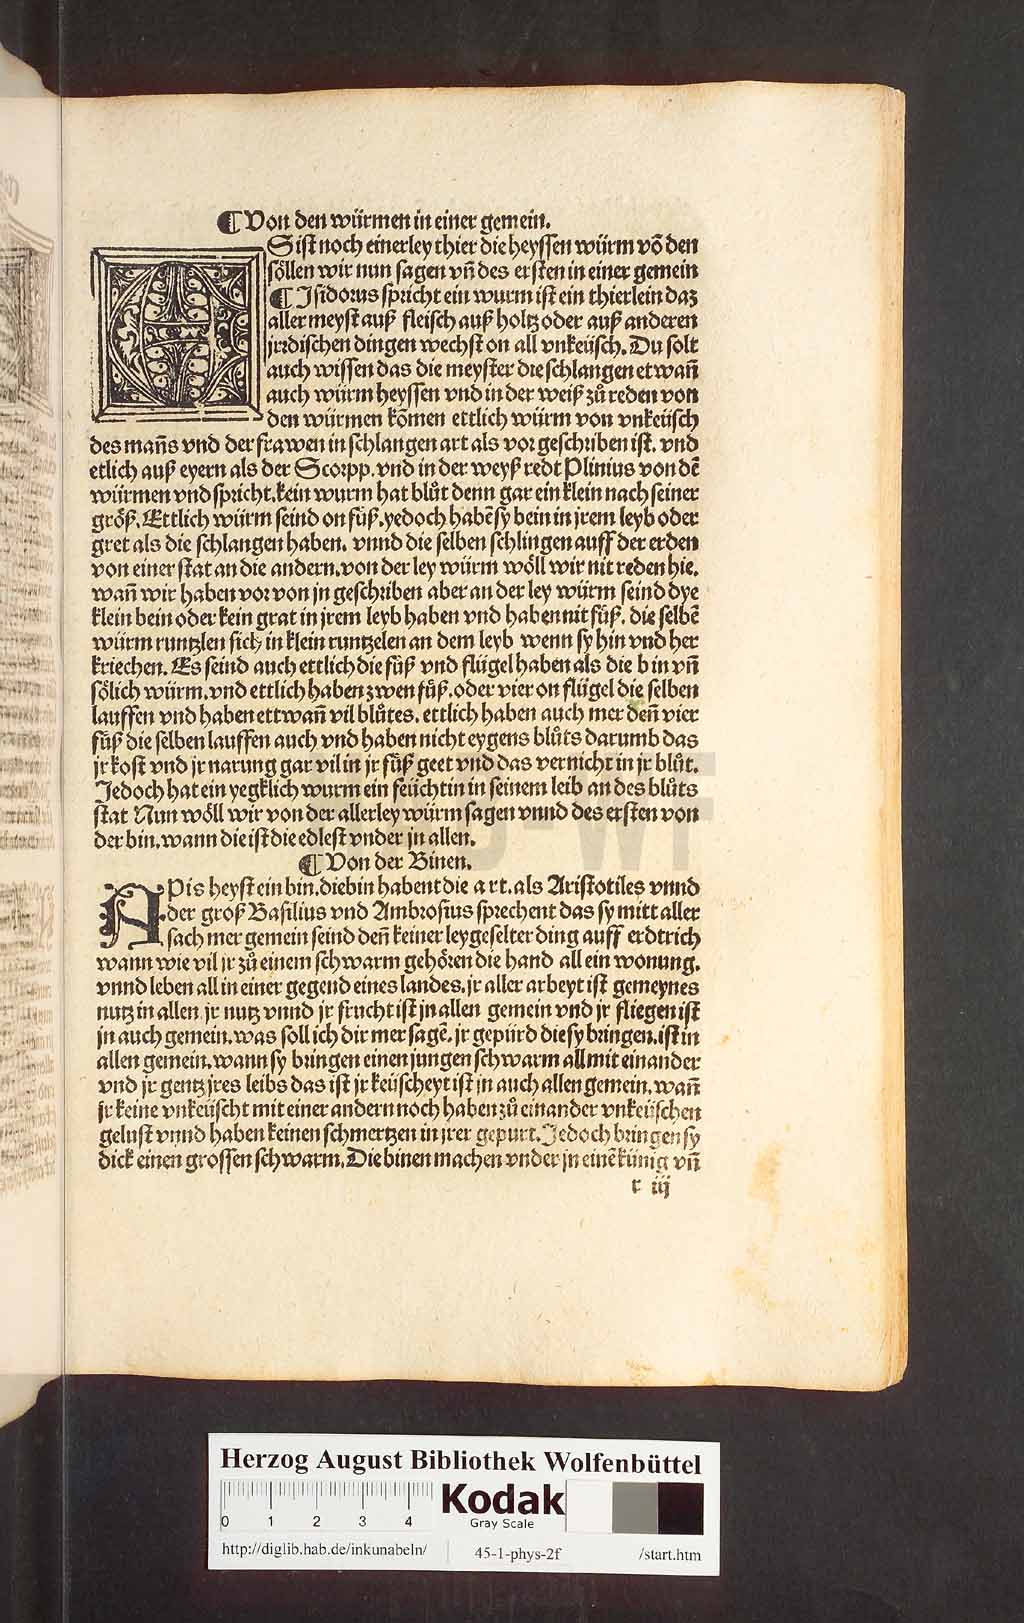 ¶ Von den würmen in einer gemein.
ES ist noch einerley thier die heyssen würm võ den
söllen wir nun sagen vñ des ersten in einer gemein
¶ Isidorus spricht ein wurm ist ein thierlein daz
aller meyst auß fleisch auß holtz oder auß anderen
jrrdischen dingen wechst on all vnkeüsch. Du solt
auch wissen das die meyster die schlangen etwañ
auch würm heyssen vnd in der weiß zů reden von
den würmen kõmen ettlich würm von vnkeüsch
des mañs vnd der frawen in schlangen art als vor geschriben ist. vnd
etlich auß eyern als der Scorpp. vnd in der weyß redt Plinius von dẽ
würmen vnd spricht. kein wurm hat blůt denn gar ein klein nach seiner
größ. Ettlich würm seind on füß. yedoch habẽ sy bein in jrem leyb oder
gret als die schlangen haben. vnnd die selben schlingen auff der erden
von einer stat an die andern. von der ley würm wöll wir nit reden hie.
wañ wir haben vor von jn geschriben aber an der ley würm seind dye
klein bein oder kein grat in jrem leyb haben vnd haben nit füß. die selbẽ
würm runtzlen sich in klein runtzelen an dem leyb wenn sy hin vnd her
kriechen. Es seind auch ettlich die füß vnd flügel haben als die bin vñ
sölich würm. vnd ettlich haben zwen füß. oder vier on flügel die selben
lauffen vnd haben ettwañ vil blůtes. ettlich haben auch mer deñ vier
füß die selben lauffen auch vnd haben nicht eygens blůts darumb das
jr kost vnd jr narung gar vil in jr füß geet vnd das vernicht in jr blůt.
Jedoch hat ein yegklich wurm ein feüchtin in seinem leib an des blůts
stat Nun wöll wir von der allerley würm sagen vnnd des ersten von
der bin. wann die ist die edlest vnder jn allen.
¶ Von der Binen.
APis heyst ein bin. die bin habent die art. als Aristotiles vnnd
der groß Basilius vnd Ambrosius sprechent das sy mitt aller
sach mer gemein seind deñ keiner ley geselter ding auff erdtrich
wann wie vil jr zů einem schwarm gehören die hand all ein wonung.
vnnd leben all in einer gegend eines landes. jr aller arbeyt ist gemeynes
nutz in allen jr nutz vnnd jr frucht ist jn allen gemein vnd jr fliegen ist
jn auch gemein. was soll ich dir mer sagẽ. jr gepürd die sy bringen. ist in
allen gemein. wann sy bringen einen jungen schwarm all mit einander
vnd jr gentz jres leibs das ist jr keüscheyt ist jn auch allen gemein. wañ
jr keine vnkeüscht mit einer andern noch haben zů einander vnkeüschen
gelust vnnd haben keinen schmertzen in jrer gepurt. Jedoch bringen sy
dick einen grossen schwarm. Die binen machen vnder jn einẽ künig vñ
r iij
HAB-WF
Herzog August Bibliothek Wolfenbüttel
0 1 2 3 4
Kodak
Gray Scale
http://diglib.hab.de/inkunabeln/ 45-1-phys-2f /start.htm